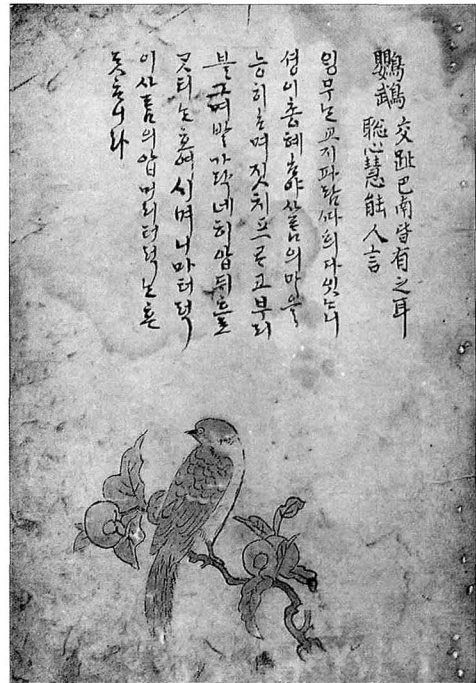 鸚鵡 交趾巴南皆有之耳
聰心慧能人言
잉무ᄂᆞᆫ교지파람ᄯᅡ희다잇ᄂᆞ니
셩이총혜ᄒᆞ야사ᄅᆞᆷ의마ᄋᆞᆯ
능히ᄒᆞ며짓치프르고부리
블그며발가락네히압뒤흐로
ᄒᆞ여시며니마터럭
이사ᄅᆞᆷ의압머리터럭ᄂᆞ흔
ᄃᆞᆺᄒᆞ니라